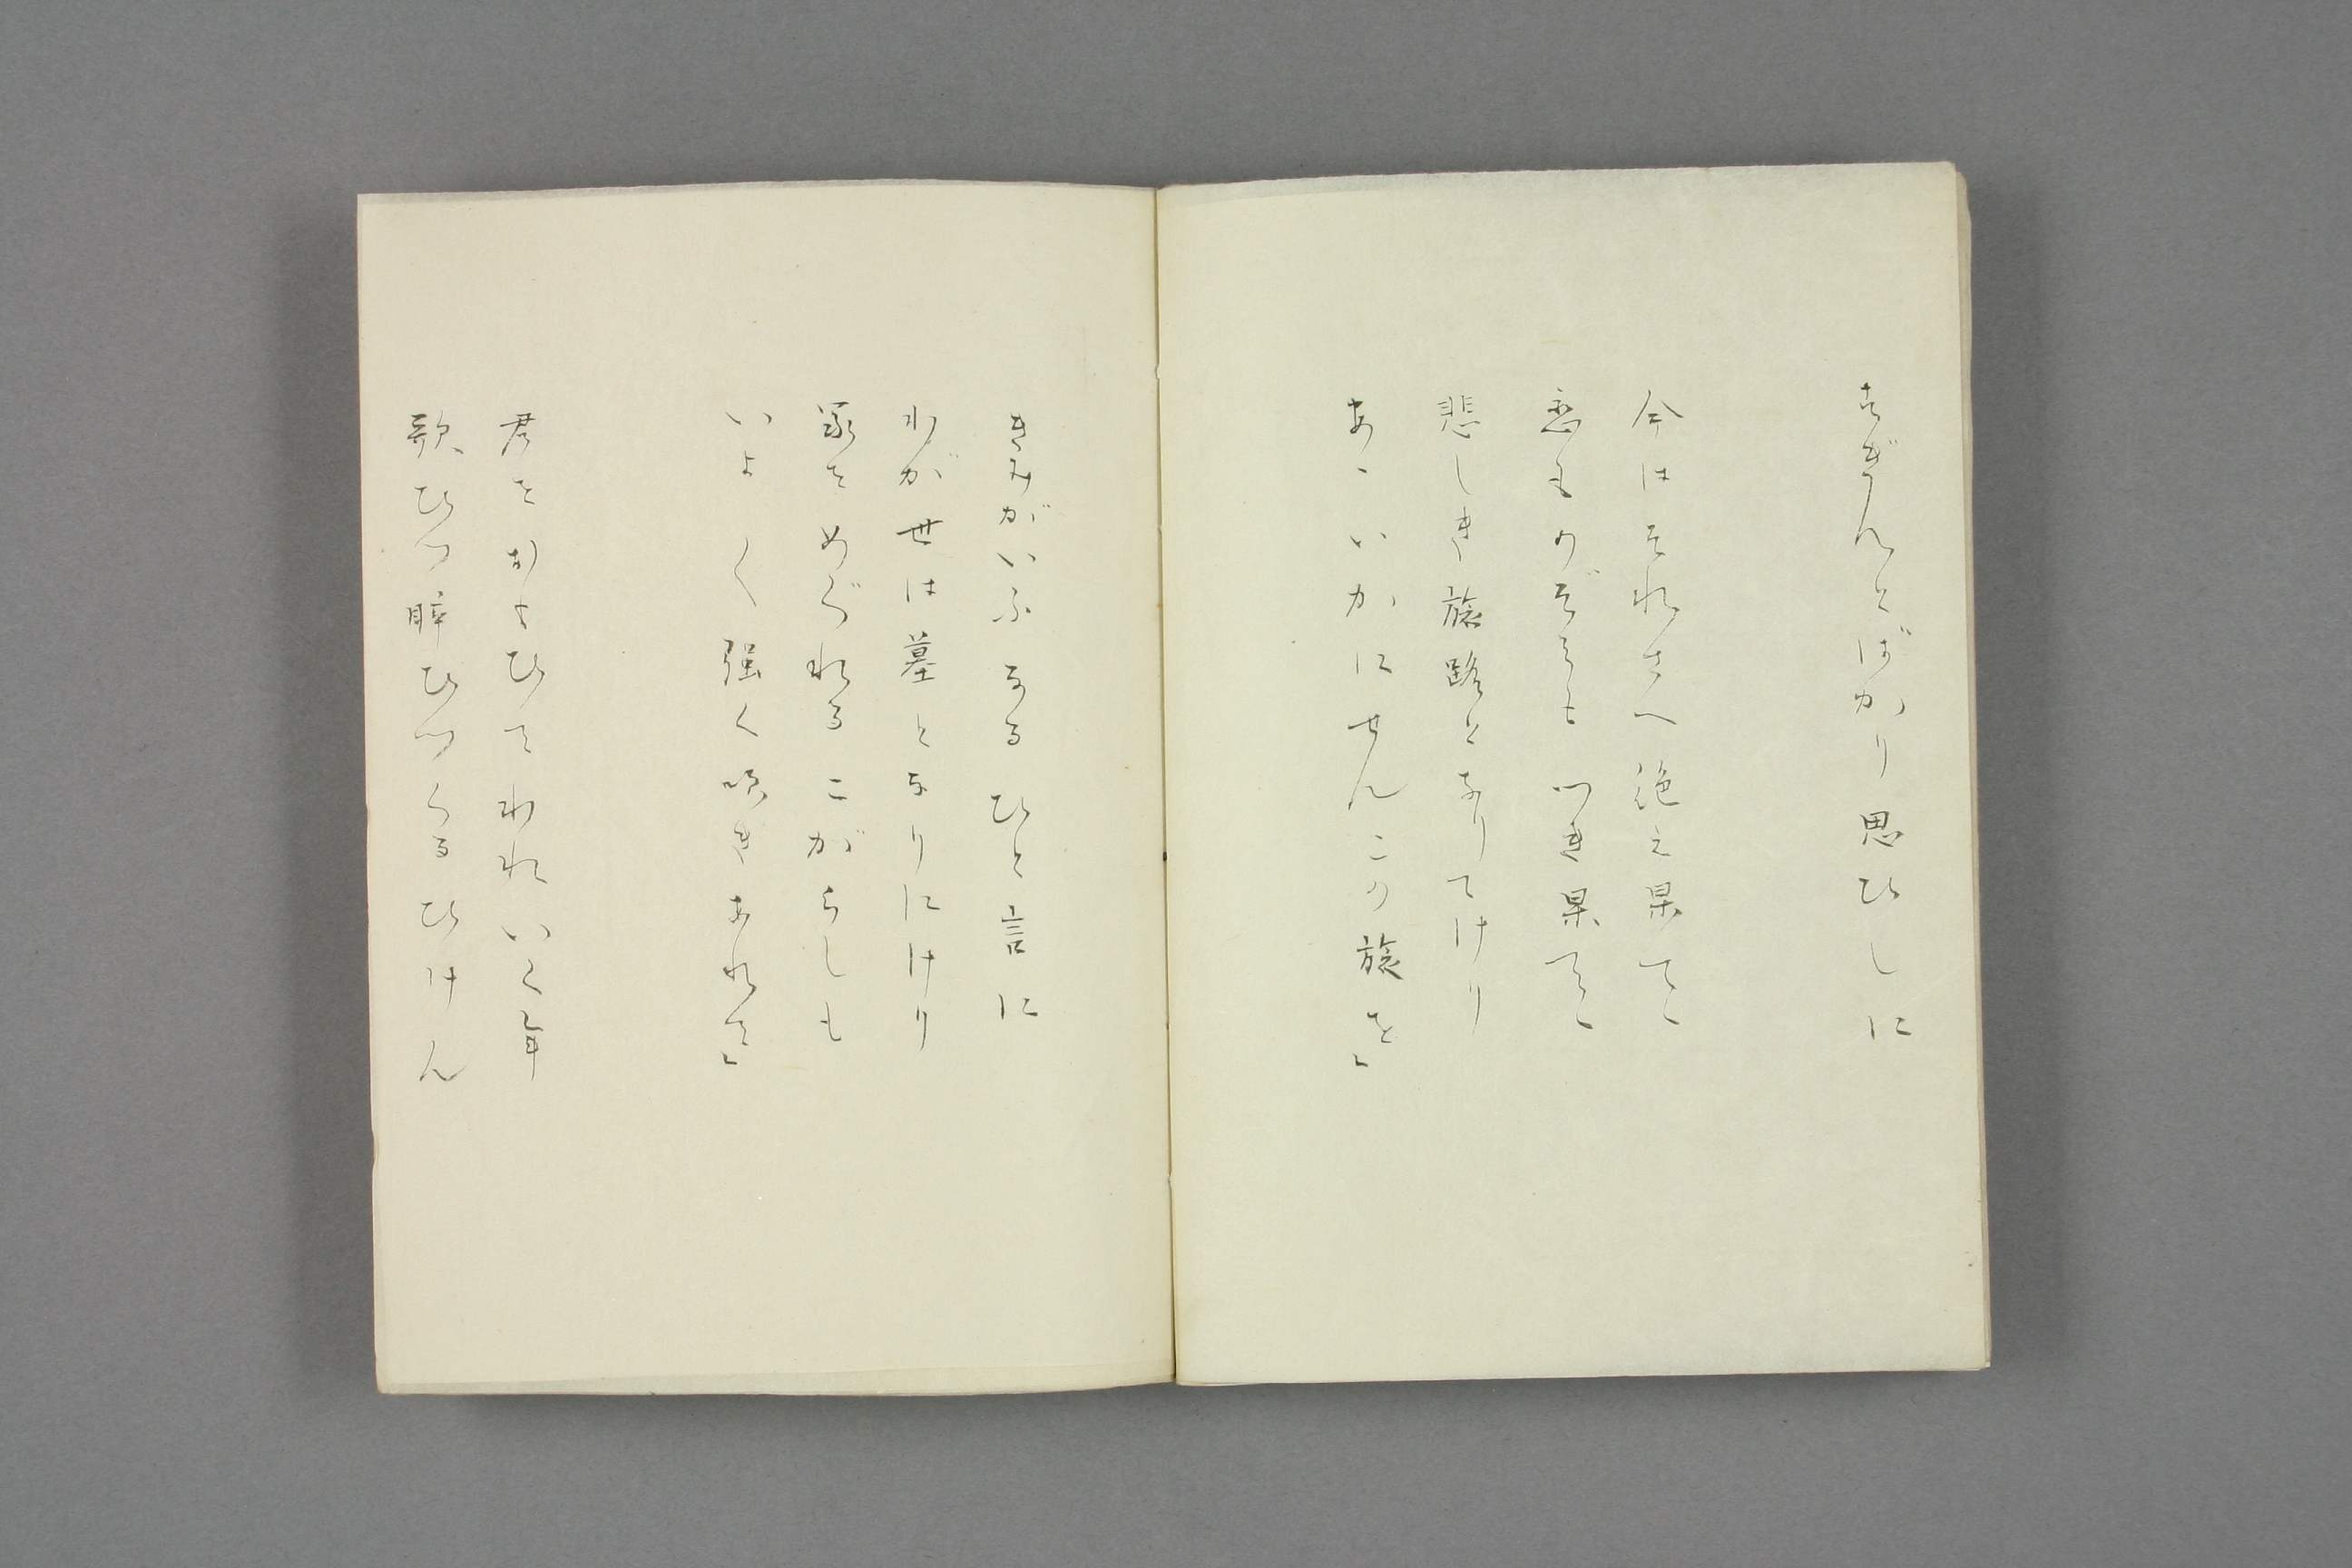 すぎんとばかり思ひしに
今はそれさへ絶え果てゝ
恋ものぞみも つき果てゝ
悲しき旅路となりてけり
あゝいかにせんこの旅を」
きみがいふなるひと言に
わが世は墓となりにけり
塚をめぐれるこがらしも
いよゝ強く吹きあれそ」
君をおもひてわれいく年
歌ひつ酔ひつくるひけん